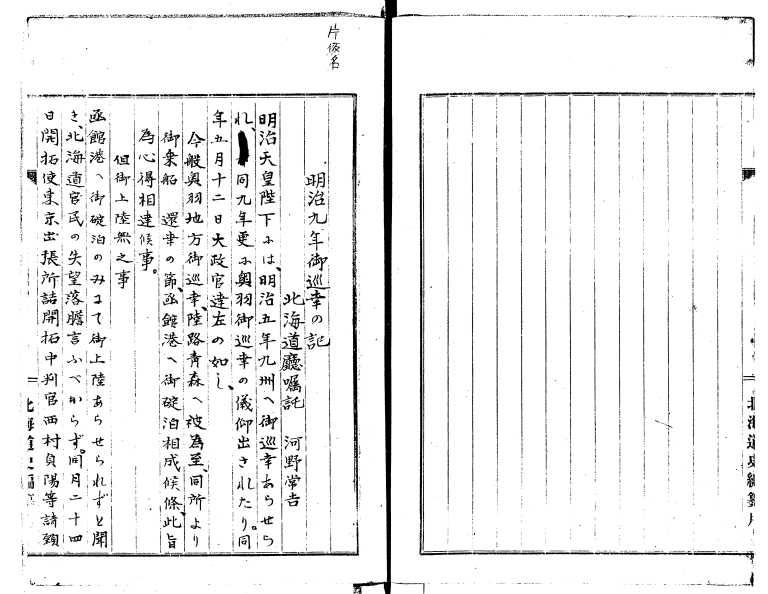 片仮名
明治九年御巡幸の記
北海道廳嘱託 河野常吉
明治天皇陛下には、明治五年九州へ御巡幸あらせら
れ、同九年更に奥羽御巡幸の儀仰出されたり。同
年五月十二日大政官達左の如し、
今般奥羽地方御巡幸、陸路青森へ被為至、同所より
御乗船 還幸の節、函館港へ御碇泊相成候條、此旨
為心得相達候事。
但御上陸無之事
函館港へ御碇泊のみにて御上陸あらせられずと聞
き、北海道官民の失望落膽言ふべからず。同月二十四
日開拓使東京出張所詰開拓中判官西村貞陽等諸類
北海道史編
北海道史編纂用